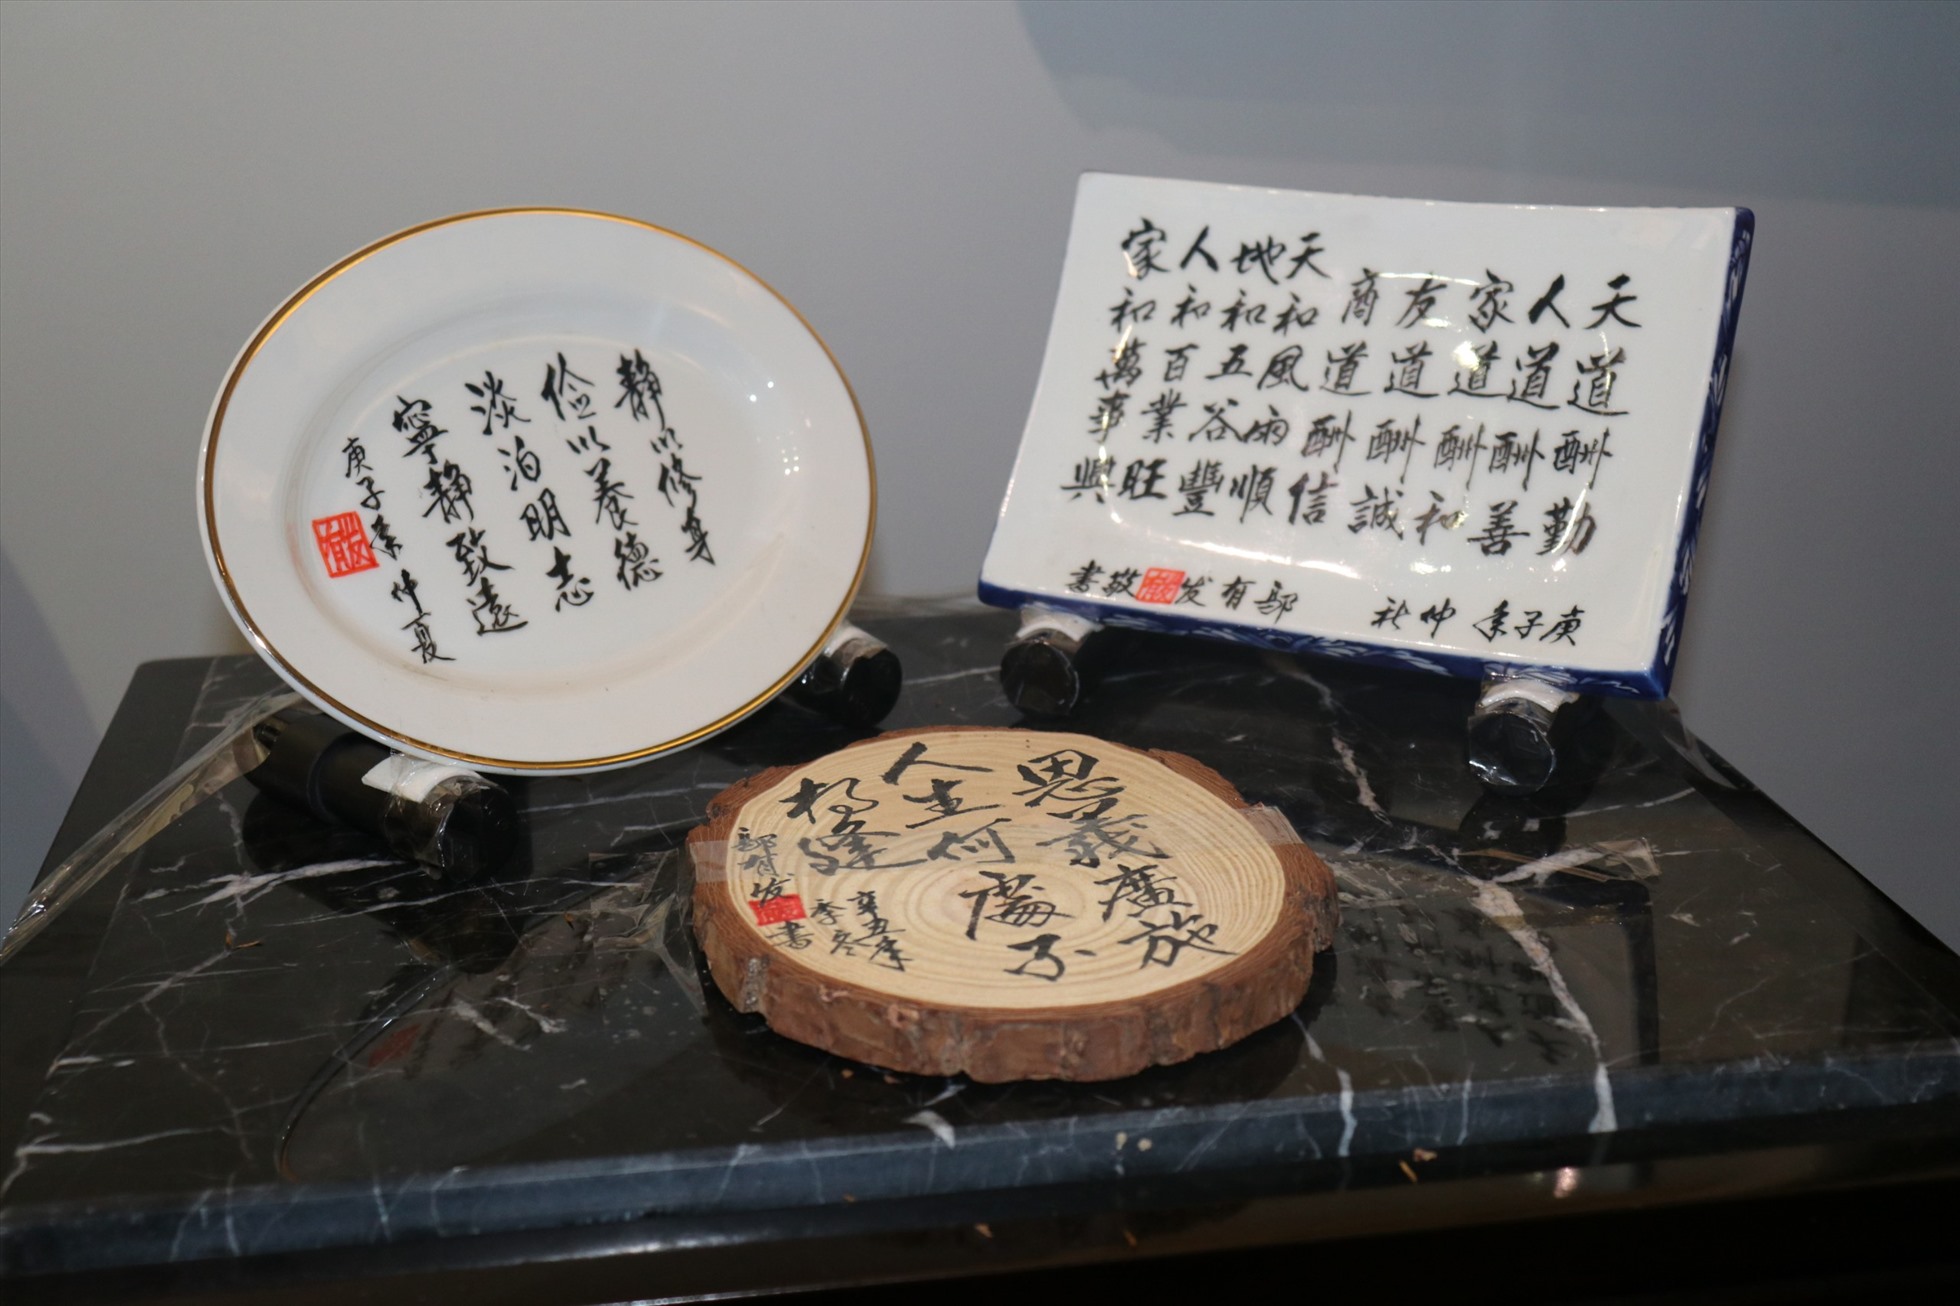 靜以修身
儉以養德
淡泊明志
寧靜致遠
庚子年仲夏
天道酬勤
人道酬善
家道酬和
友道酬誠
商道酬信
天和風雨順
地和五谷豐
人和百業旺
家和萬事興
庚子年仲秋
鄔有发敬書
恩義廣施
人生何處不
相逢
辛丑年
季冬
鄔有发書